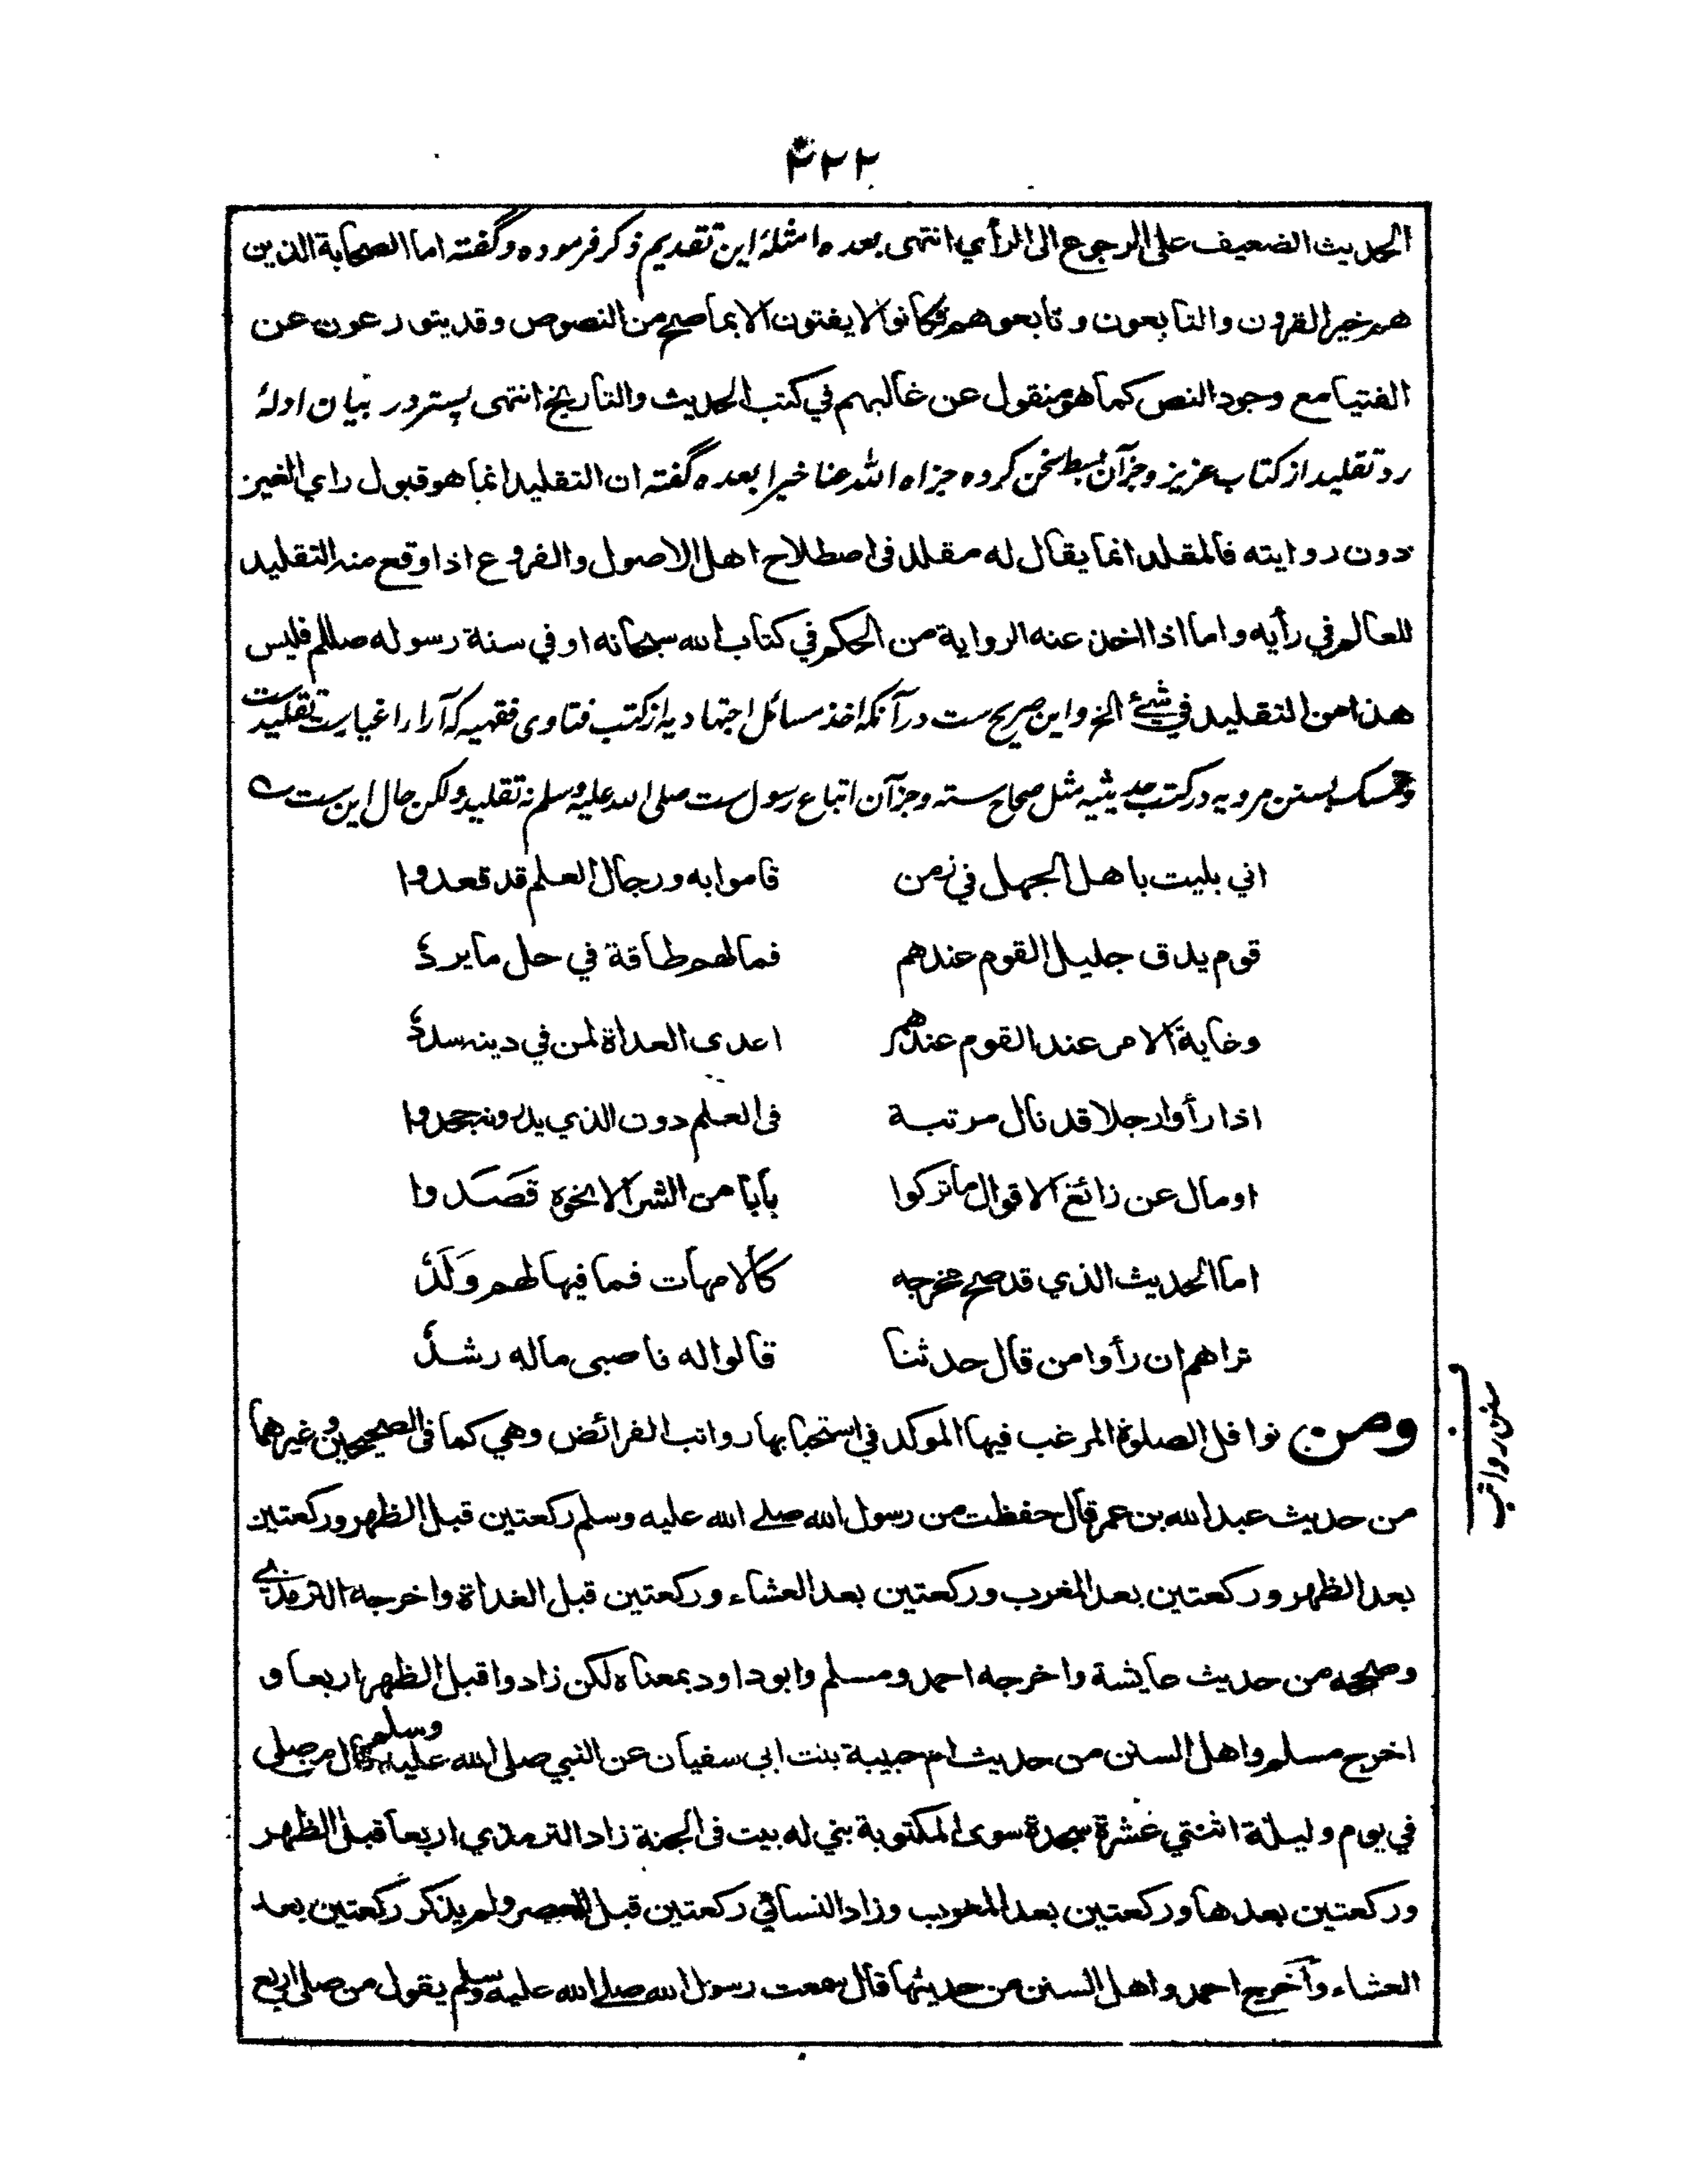 ۴۲۲
الحديث الضعيف على الرجوع الى الرأي انتهى بعده امثلۀ این تقدیم ذکر فرموده و گفته اما الصحابة الذين
هم خير القرون والتابعون وتابعوهم فكانوا لا يفتون الا بما صح من النصوص وقد يتورعون عن
الفتيا مع وجود النص كما هو منقول عن غالبهم في كتب الحديث والتاريخ انتهى پستر در بیان ادلۀ
رد تقلید از کتاب عزیز و جز آن بسط سخن کرده جزاه الله عنا خیرا بعده گفته ان التقليد انما هو قبول راي الغير
دون روايته فالمقلد انما يقال له مقلد فى اصطلاح اهل الاصول والفروع اذا وقع منه التقليد
للعالم في رأيه واما اذا اخذ عنه الرواية من الحكم في كتاب الله سبحانه او في سنة رسوله صللم فليس
هذا من التقليد في شئ الخ واین صریح ست در آنکه اخذ مسائل اجتهادیه از کتب فتاوی فقهیه که آرا را غیارست تقلیدست
وتمسک بسنن مرویه در کتب حدیثیه مثل صحاح سته و جز آن اتباع رسول ست صلی الله علیه وسلم نه تقلید ولکن حال این ست
اني بليت باهل الجهل في زمن قاموا به ورجال العلم قد قعدوا
قوم يدق جليل القوم عندهم فما لهم طاقة في حل ما يردُ
وغاية الامر عند القوم عندهم اعدى العداة لمن في دينه سددُ
اذا رأوا رجلا قد نال مرتبة فى العلم دون الذي يدرونه جحدوا
او مال عن زائغ الاقوال ما تركوا بابا من الشر الا نحوه قَصَدوا
اما الحديث الذي قد صح مخرجه كالامهات فما فيها لهم وَلَدُ
تراهم ان رأوا من قال حدثنا قالوا له ناصبى ماله رشدُ
ومن نوافل الصلوة المرغب فيها الموكد في استحبابها رواتب الفرائض وهي كما فى الصحيحين وغيرهما
سنن رواتب
من حديث عبد الله بن عمر قال حفظت من رسول الله صلى الله عليه وسلم ركعتين قبل الظهر وركعتين
بعد الظهر وركعتين بعد المغرب وركعتين بعد العشاء وركعتين قبل الغداة واخرجه الترمذي
وصححه من حديث عايشة واخرجه احمد ومسلم وابو داود بمعناه لكن زادوا قبل الظهر اربعا و
اخرج مسلم واهل السنن من حديث ام حبيبة بنت ابي سفيان عن النبي صلى الله عليه وسلم قال من صلى
في يوم وليلة اثنتي عشرة سجدة سوى المكتوبة بني له بيت فى الجنة زاد الترمذي اربعا قبل الظهر
وركعتين بعدها وركعتين بعد المغرب وزاد النسائي ركعتين قبل العصر ولم يذكر ركعتين بعد
العشاء وأخرج احمد واهل السنن من حديثها قال سمعت رسول الله صلى الله عليه وسلم يقول من صلى اربع